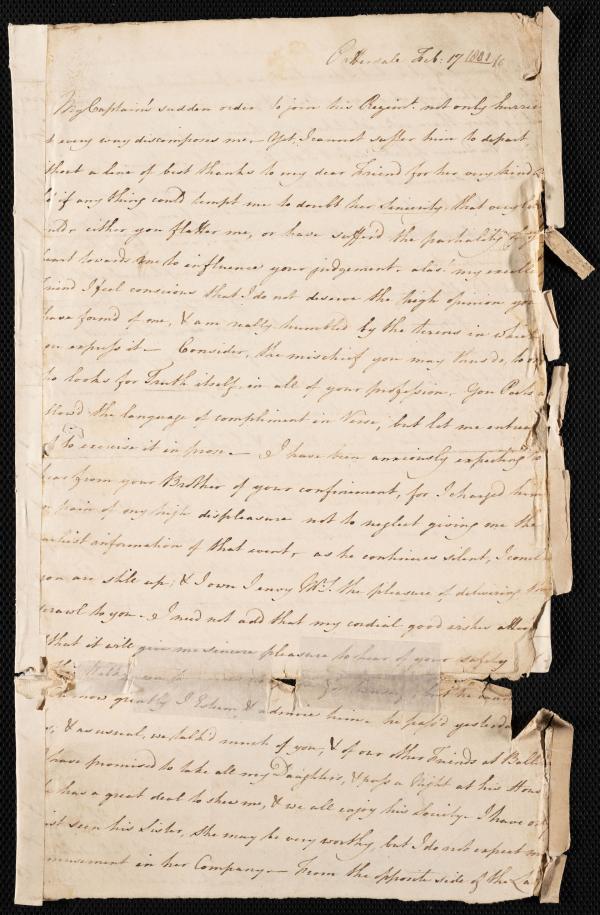 Feb: 17
My Captain's sudden order to join his Regimt. not only hurrie
every way discomposes me. Yet, I cannot suffer him to depart
a line of best thanks to my dear Friend for her very kind
if any thing could tempt me to doubt her Sincerity, that
either you flatter me, or have suffer'd the partiality
heart towards me to influence your judgement. alas! my
I feel conscious that I do not deserve the high opinion you
have formd of me, & am really humbled by the terms in which
express it — Consider, the mischief you may thus do, to
looks for Truth itself, in all of your profession. You Poets
the language of compliment in Verse, but let me entreat
to exercise it in prose. — I have been anxiously expecting to
from your Brother of your confinement, for I charged him
pain of my high displeasure not to neglect giving me the
information of that event, as he continues silent, I
you are still up, & I own I envy Mr. T. the pleasure of delivering
to you. I need not add that my cordial good wishes
that it will give me sincere pleasure to hear of your safety

know greatly I Esteem & admire him. he pass'd yesterday
& as usual, we talk'd much of you, & of our other Friends at
have promised to take all my Daughters, & pass a Night at his House
has a great deal to shew me, & we all enjoy his Society. I have only
seen his Sister, she may be very worthy, but I do not expect
in her Company. — From the opposite side of the